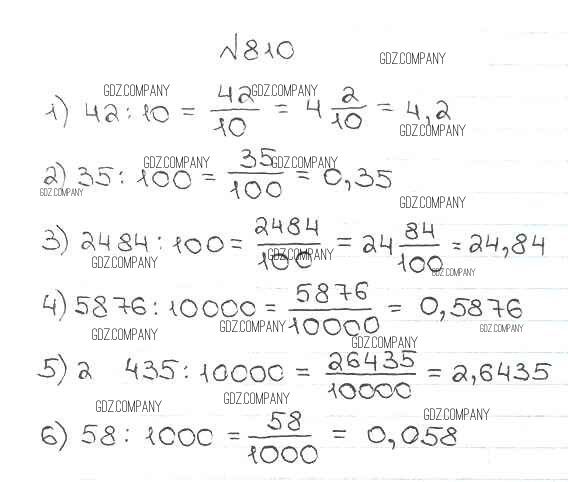 №810
GDZ.COMPANY
GDZ.COMPANY GDZ.COMPANY
1) 42 : 10 = 42/10 = 4 2/10 = 4,2
GDZ.COMPANY
GDZ.COMPANY GDZ.COMPANY
2) 35 : 100 = 35/100 = 0,35
GDZ.COMPANY
GDZ.COMPANY
3) 2484 : 100 = 2484/100 = 24 84/100 = 24,84
GDZ.COMPANY GDZ.COMPANY GDZ.COMPANY
4) 5876 : 10000 = 5876/10000 = 0,5876
GDZ.COMPANY GDZ.COMPANY GDZ.COMPANY
GDZ.COMPANY
5) 2 435 : 10000 = 26435/10000 = 2,6435
GDZ.COMPANY GDZ.COMPANY GDZ.COMPANY
6) 58 : 1000 = 58/1000 = 0,058